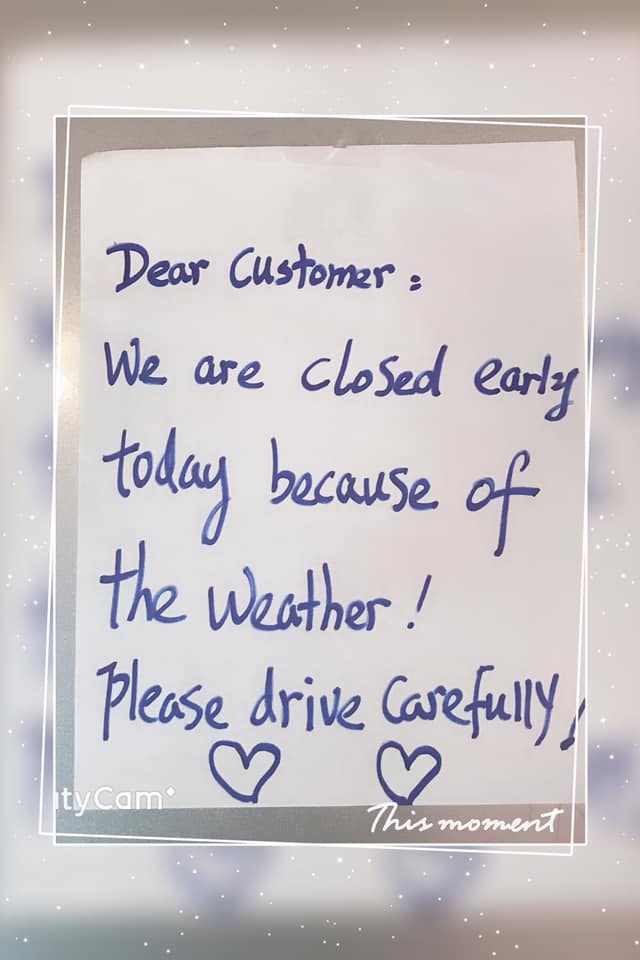 Dear Customer:
We are closed early
today because of
the weather!
please drive carefully!
utyCam+
This moment